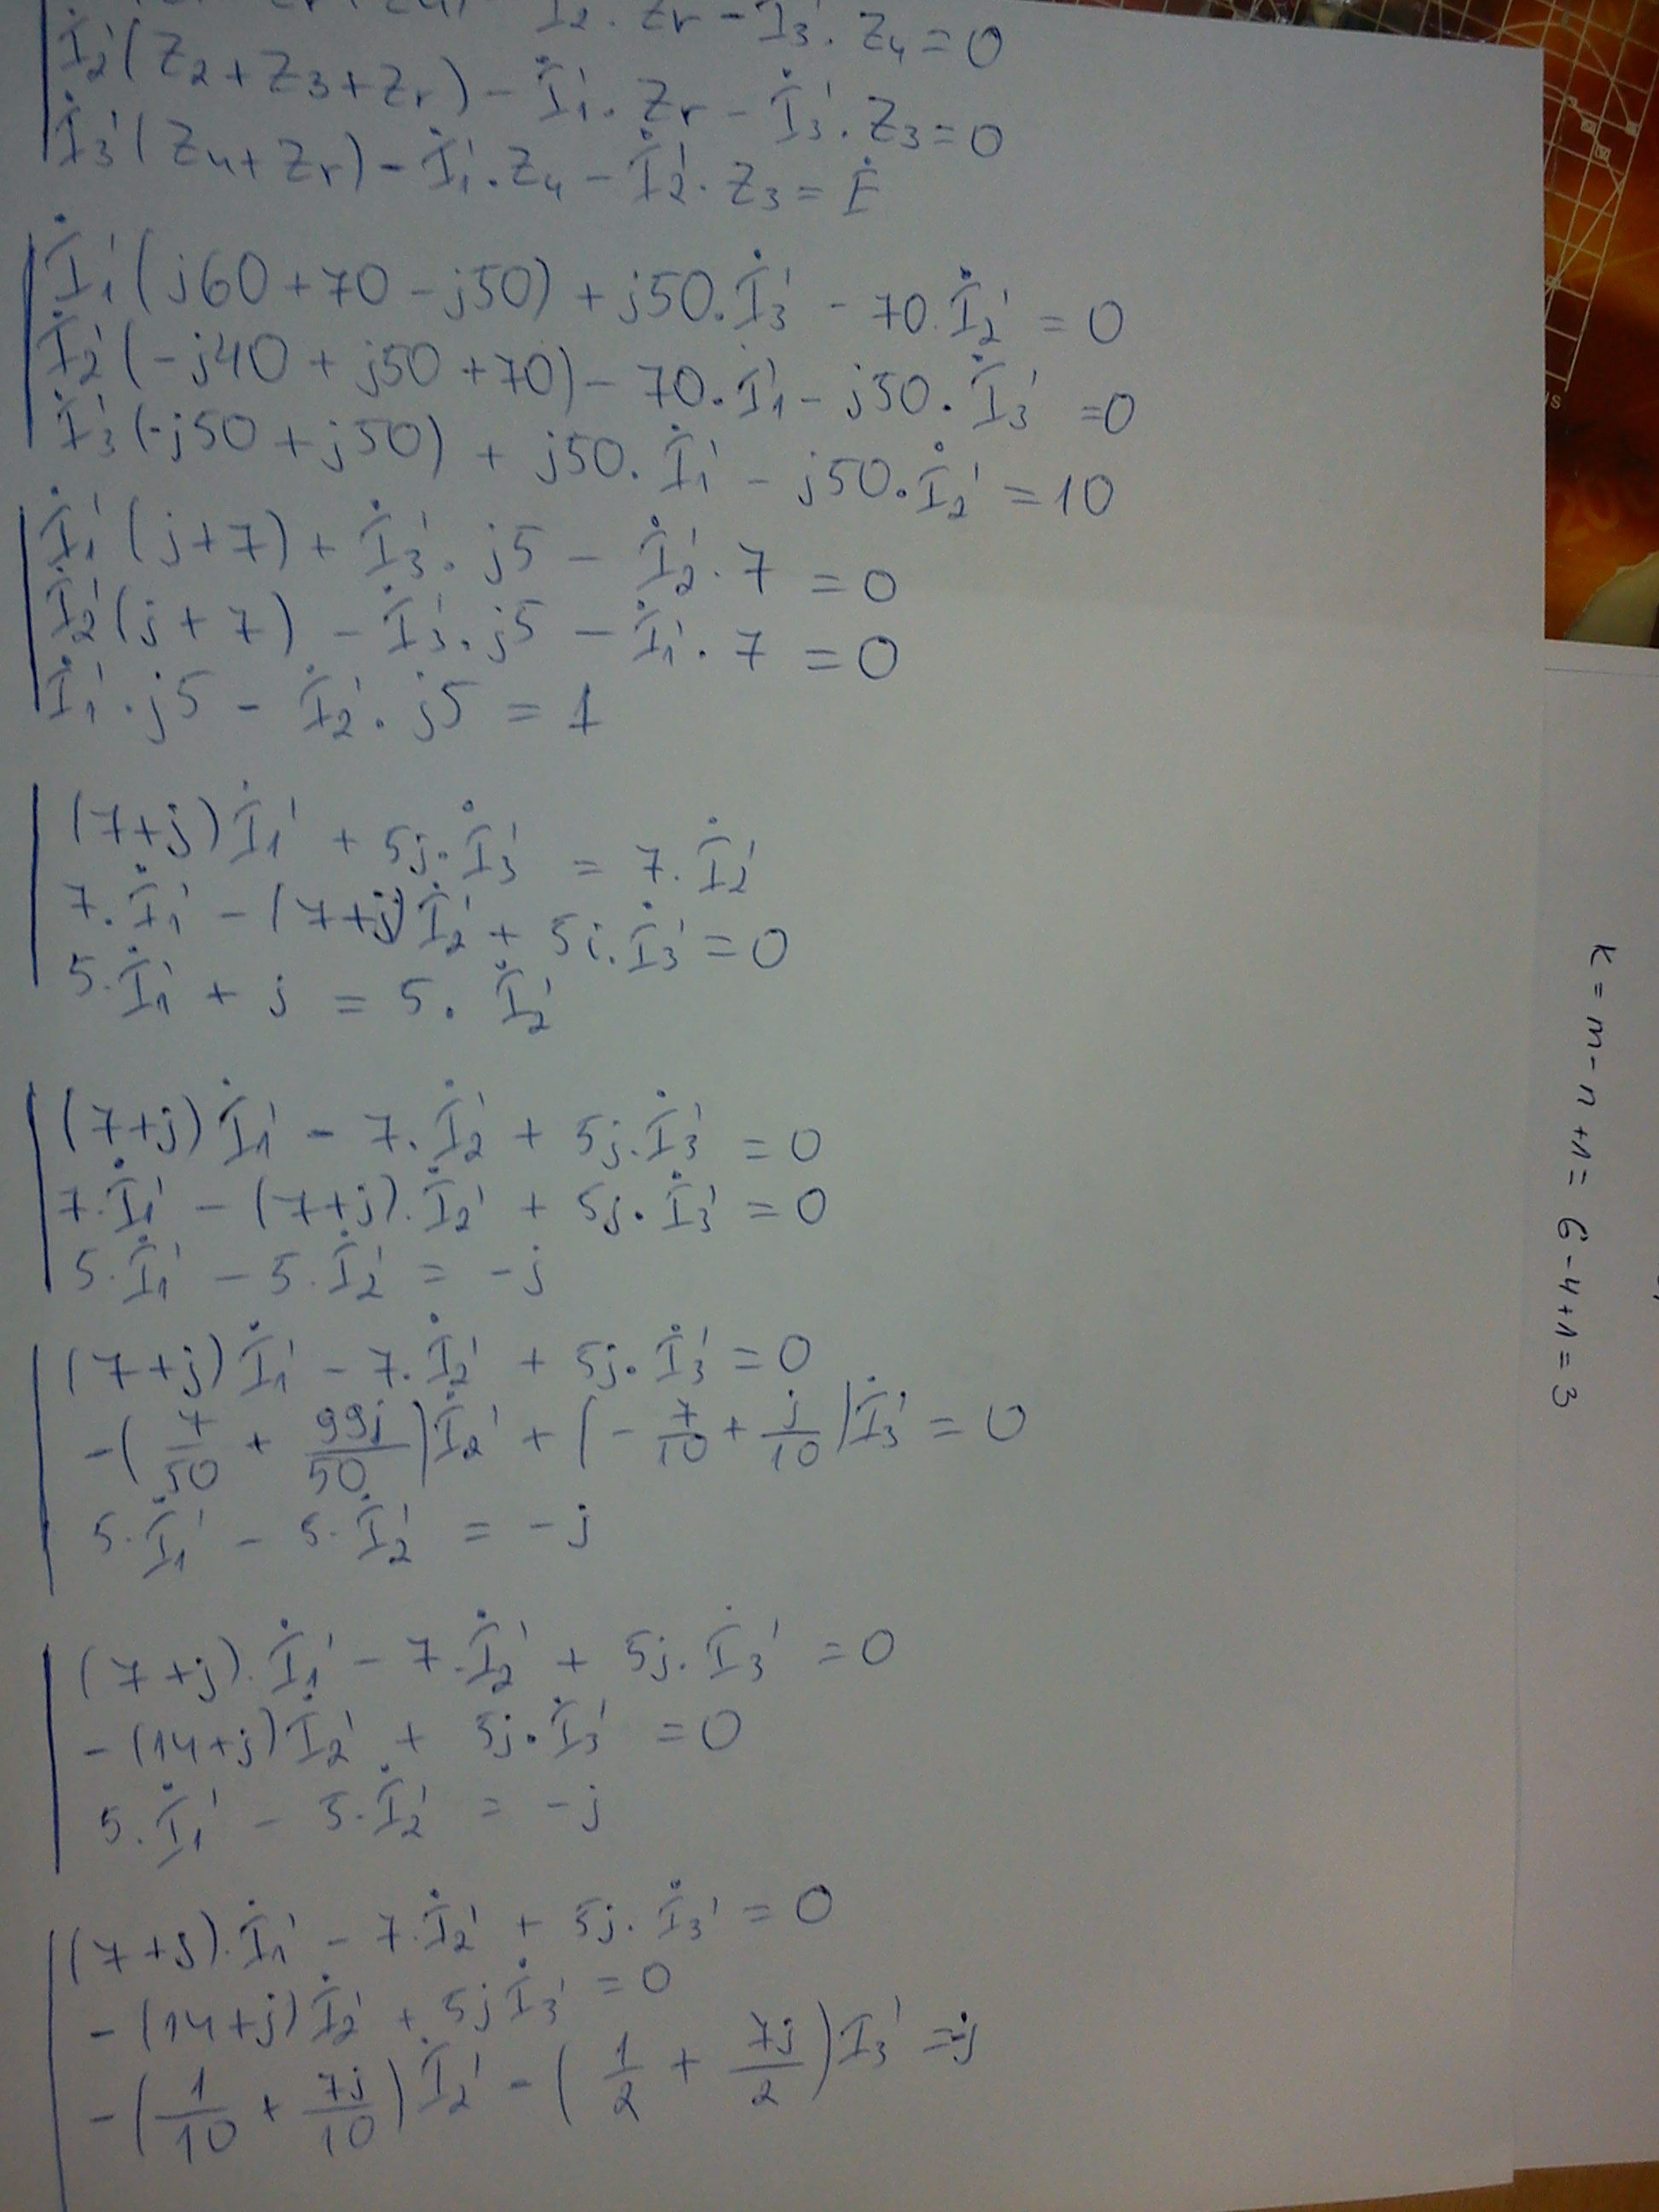 İ₂' . Zr - İ₃' . Z₄ = 0
İ₂'(Z₂ + Z₃ + Zr) - İ₁' . Zr - İ₃' . Z₃ = 0
İ₃'(Z₄ + Zr) - İ₁' . Z₄ - İ₂' . Z₃ = Ė
İ₁'(j60 + 70 - j50) + j50 . İ₃' - 70 . İ₂' = 0
İ₂'(-j40 + j50 + 70) - 70 . İ₁' - j50 . İ₃' = 0
İ₃'(-j50 + j50) + j50 . İ₁' - j50 . İ₂' = 10
İ₁'(j+7) + İ₃' . j5 - İ₂' . 7 = 0
İ₂'(j+7) - İ₃' . j5 - İ₁' . 7 = 0
İ₁' . j5 - İ₂' . j5 = 1
(7+j) İ₁' + 5j . İ₃' = 7 . İ₂'
7 . İ₁' - (7+j) İ₂' + 5j . İ₃' = 0
5 . İ₁' + j = 5 . İ₂'
(7+j) İ₁' - 7 . İ₂' + 5j . İ₃' = 0
7 . İ₁' - (7+j) . İ₂' + 5j . İ₃' = 0
5 . İ₁' - 5 . İ₂' = -j
(7+j) İ₁' - 7 . İ₂' + 5j . İ₃' = 0
-(7/50 + 99j/50) İ₂' + (-7/10 + j/10) İ₃' = 0
5 . İ₁' - 5 . İ₂' = -j
(7+j) . İ₁' - 7 . İ₂' + 5j . İ₃' = 0
-(14+j) İ₂' + 5j . İ₃' = 0
5 . İ₁' - 5 . İ₂' = -j
(7+j) . İ₁' - 7 . İ₂' + 5j . İ₃' = 0
-(14+j) İ₂' + 5j İ₃' = 0
-(1/10 + 7j/10) İ₂' - (1/2 + 7j/2) I₃' = -j
K = m - n + 1 = 6 - 4 + 1 = 3